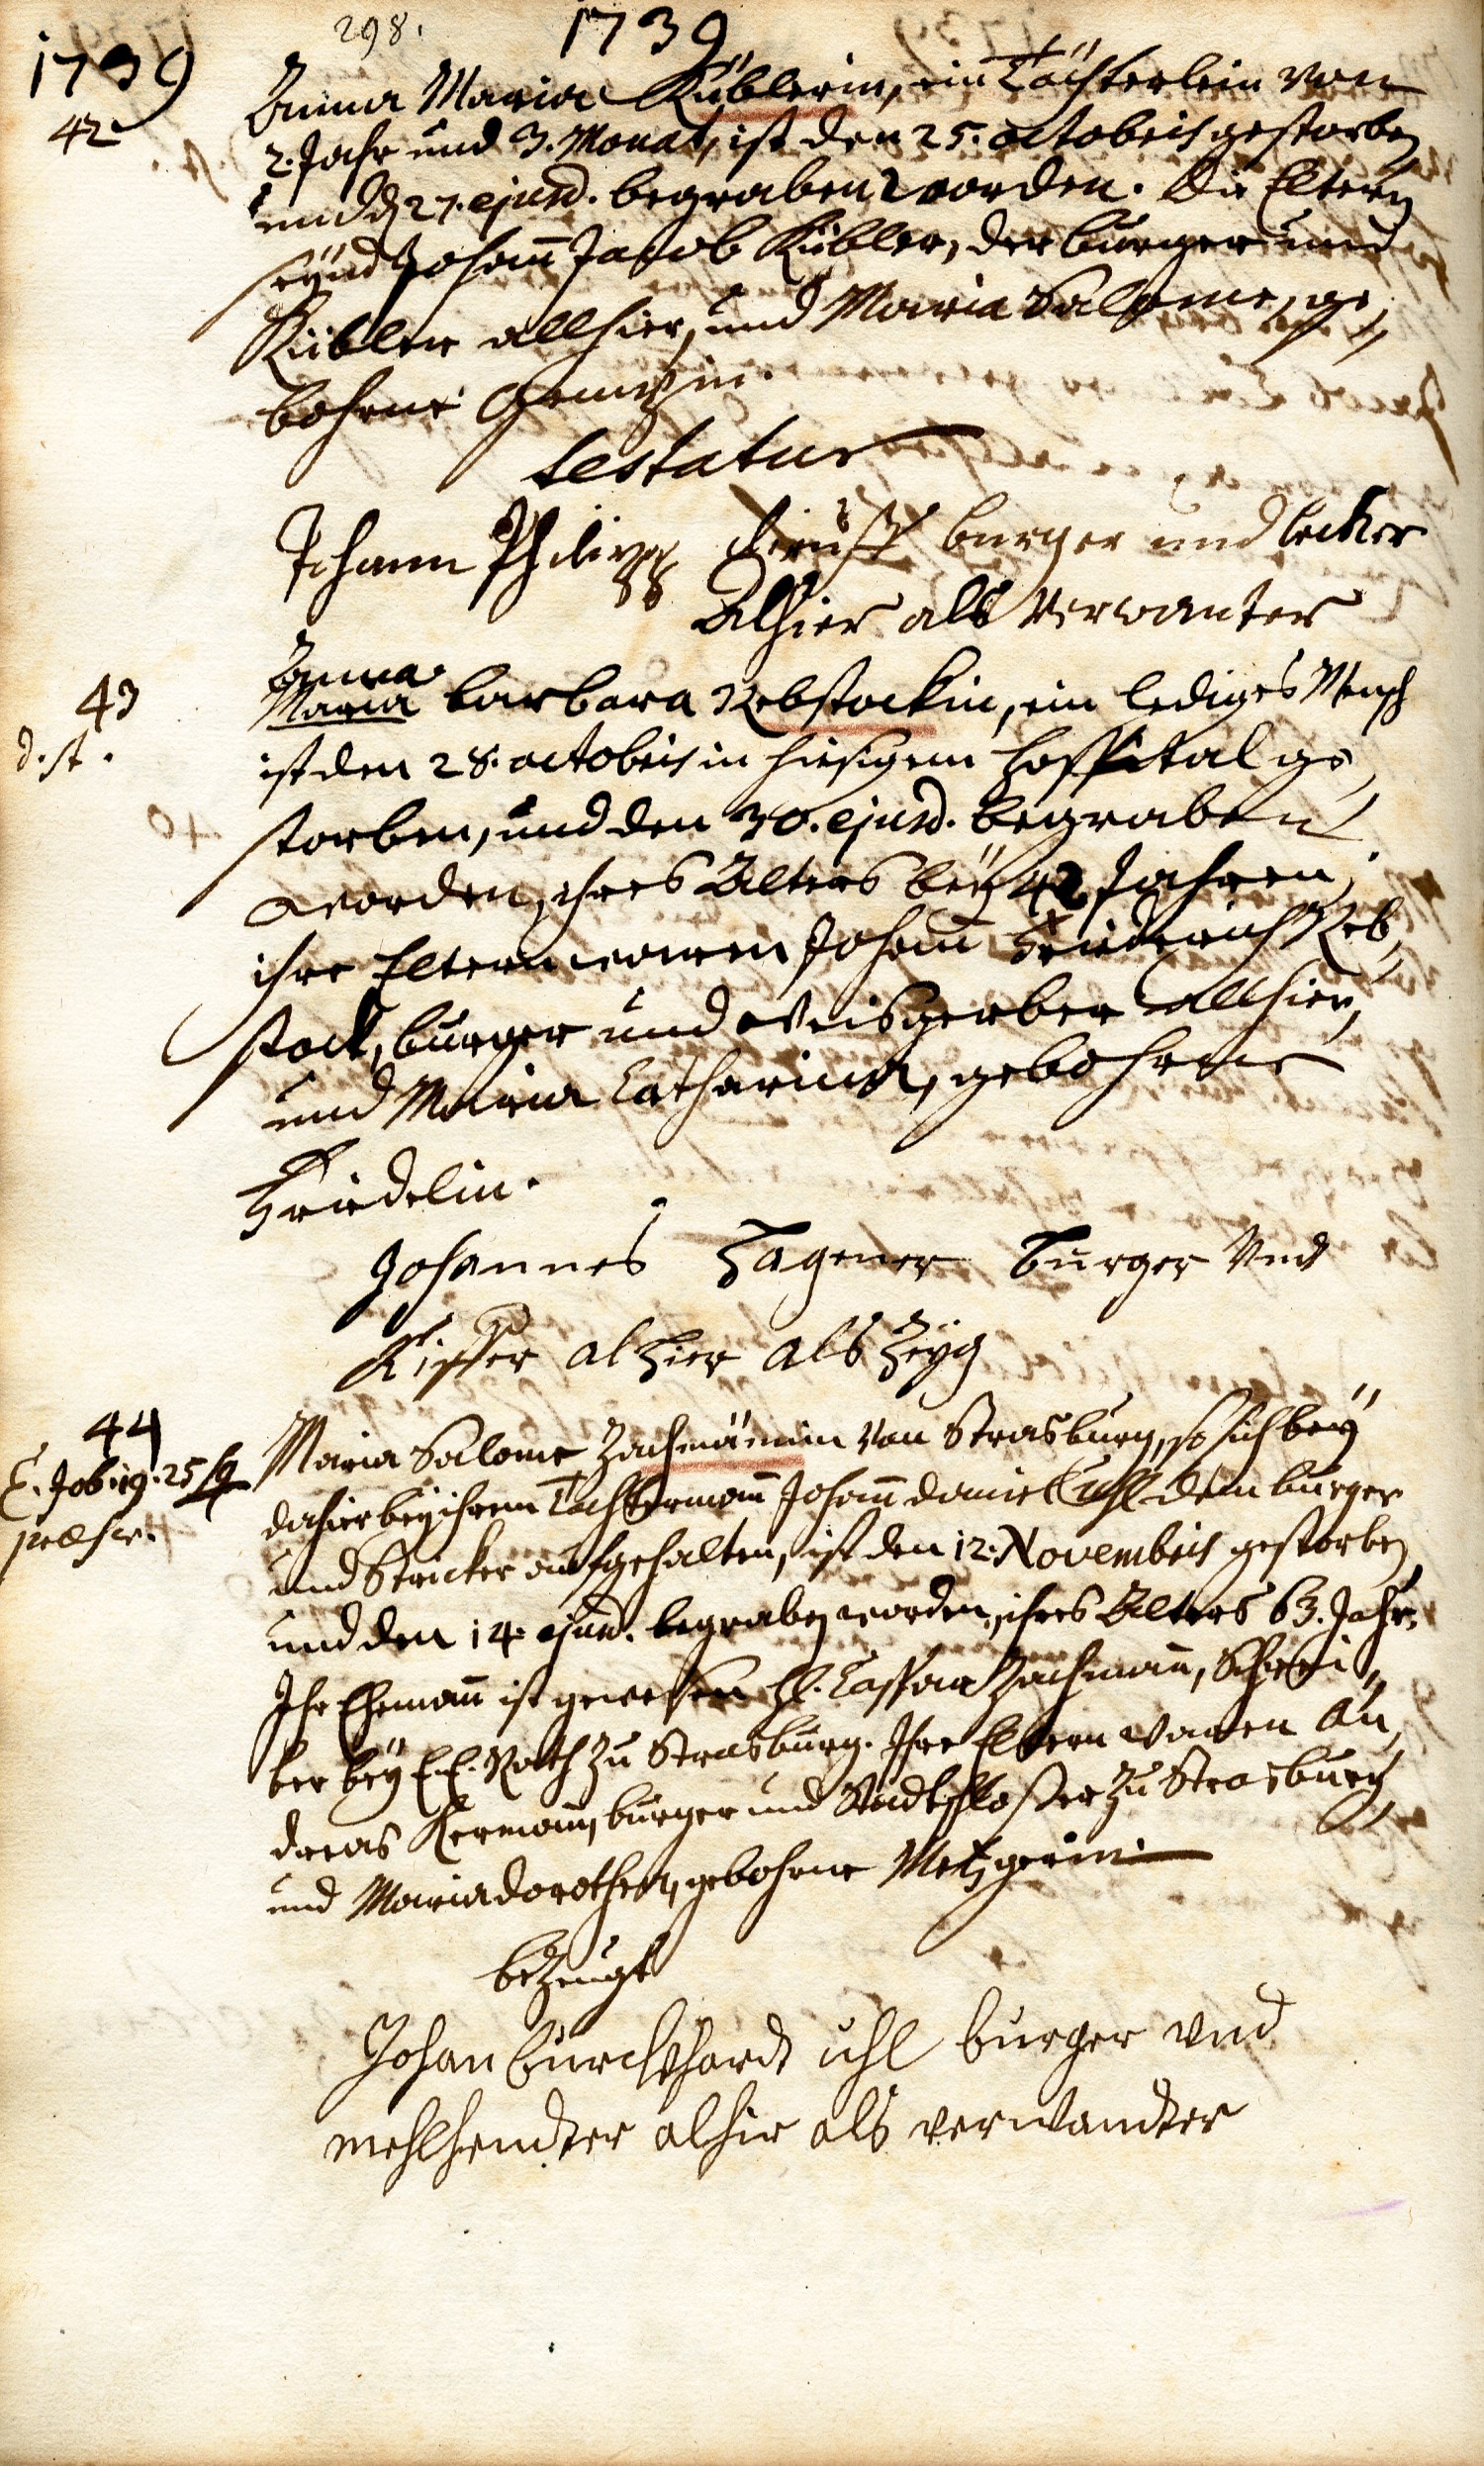 298.
1739
1739
42
Anna Maria Küblerin, ein Töchterlein von
2. Jahr und 3. Monat, ist den 25. octobris gestorben
und d 27. ejusd. begraben worden. Die Eltern
seynd Johañ Jacob Kübler, der burger und
Kübler allhier, und Maria Salome, ge,,
bohrne
testatur
Johann Philipp burger und becker
Alhier als Verwanter
43
d. st.
Anna
Maria barbara Rebstockin, ein lediges Mensch
ist den 28. octobris in hiesigem Hospital ge,,
storben, und den 30. ejusd. begraben
worden, ihres Alters bey 42 Jahren,
ihre Eltern waren Johañ Friderich Reb,,
stock, burger und Weisgerber allhier,
und Maria Catharina, gebohrne
Friedelin.
Johannes Hagener burger Vnd
Kieffer alhier als Zeug
44
C. Job. 19. 25 sq
Maria Salome Zachmännin von Strasburg, so sich bey
dahier bey ihrem Tochtermañ Johañ daniel Uhl dem burger
und Stricker aufgehalten, ist den 12. Novembris gestorben
und den 14. ejusd. begraben worden, ihres Alters 63. Jahr.
Ihr Ehemañ ist gewesen H. Caspar Zachmañ, Schrei,,
ber bey E. E. Rath zu Strasburg. Ihre Eltern waren An,,
dreas Hermañ, burger und Stadtschloßer zu Strasburg
und Maria dorothea, gebohrne Metzgerin.
bezeugt
Johan burckhardt uhl burger vnd
mehlhendter alhier als verwandter